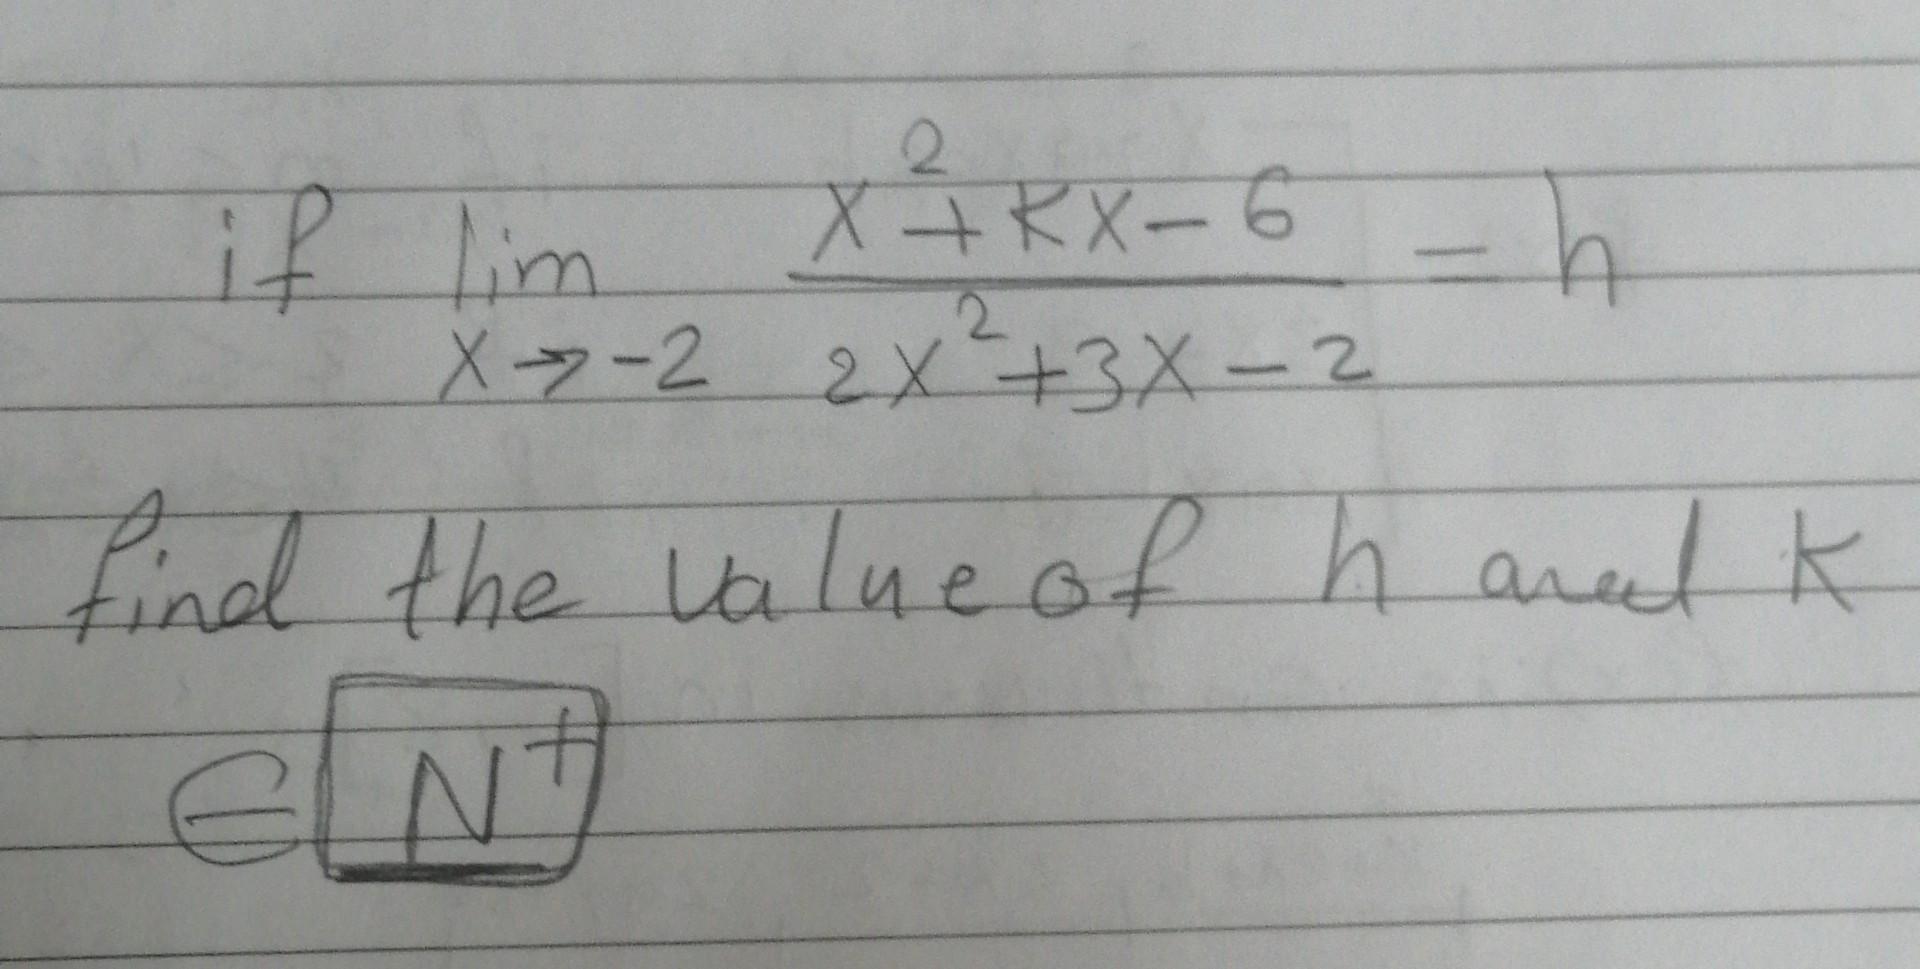 if lim x²+kx-6 = h
x→-2 2x²+3x-2
find the value of h and k
∈ N⁺